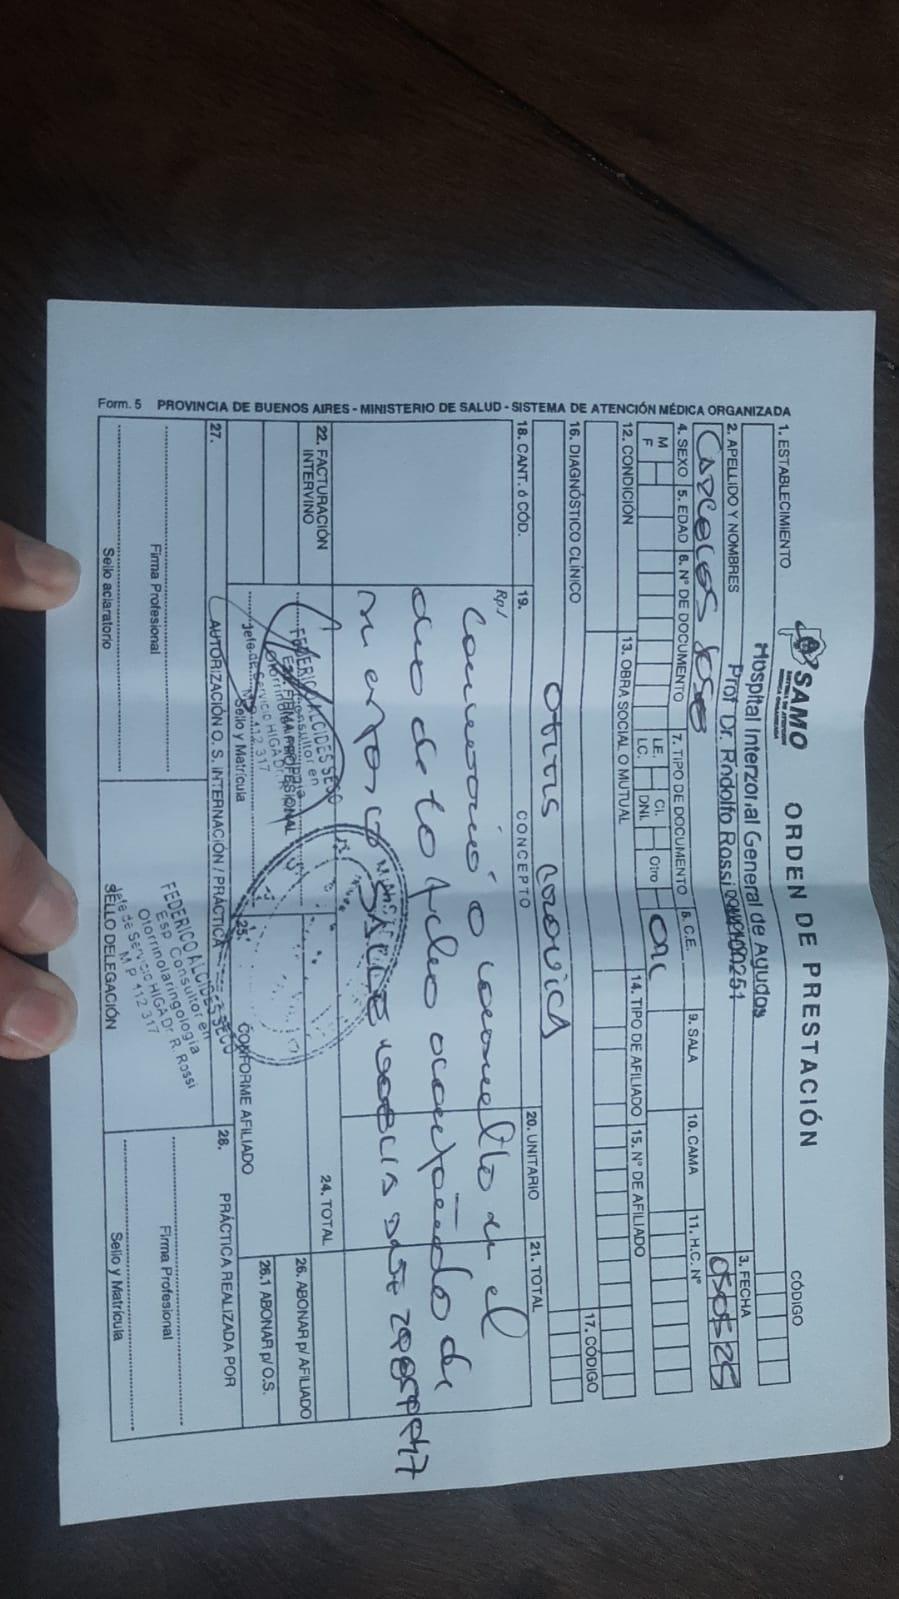 SAMO
SISTEMA DE ATENCIÓN
MÉDICA ORGANIZADA
ORDEN DE PRESTACIÓN
CÓDIGO
1. ESTABLECIMIENTO
Hospital Interzonal General de Agudos
Prof Dr. Rodolfo Rossi
2. APELLIDO Y NOMBRES
3. FECHA
050525
4. SEXO
5. EDAD
6. Nº DE DOCUMENTO
7. TIPO DE DOCUMENTO
8. C.E.
9. SALA
10. CAMA
11. H.C. Nº
M
F
L.E.
L.C.
CI.
DNI.
Otro
12. CONDICIÓN
13. OBRA SOCIAL O MUTUAL
14. TIPO DE AFILIADO
15. Nº DE AFILIADO
16. DIAGNÓSTICO CLÍNICO
17. CÓDIGO
otitis cronica
18. CANT. ó CÓD.
19. CONCEPTO
20. UNITARIO
21. TOTAL
Rp/
o en el
de de
22. FACTURACIÓN
INTERVINO
24. TOTAL
FEDERICO ALCIDES SECO
FIRMA PROFESIONAL
Jefe de Servicio HIGA Dr. R.
M.P. 412 317
Sello y Matrícula
25.
CONFORME AFILIADO
26. ABONAR p/ AFILIADO
26.1 ABONAR p/ O.S.
27.
AUTORIZACIÓN O. S. INTERNACIÓN / PRÁCTICA
28.
PRÁCTICA REALIZADA POR
Firma Profesional
Sello aclaratorio
FEDERICO ALCIDES SECO
Esp. Consultor en
Otorrinolaringología
Jefe de Servicio HIGA Dr. R. Rossi
M.P. 412 317
SELLO DELEGACIÓN
Firma Profesional
Sello y Matrícula
Form. 5 PROVINCIA DE BUENOS AIRES - MINISTERIO DE SALUD - SISTEMA DE ATENCIÓN MÉDICA ORGANIZADA